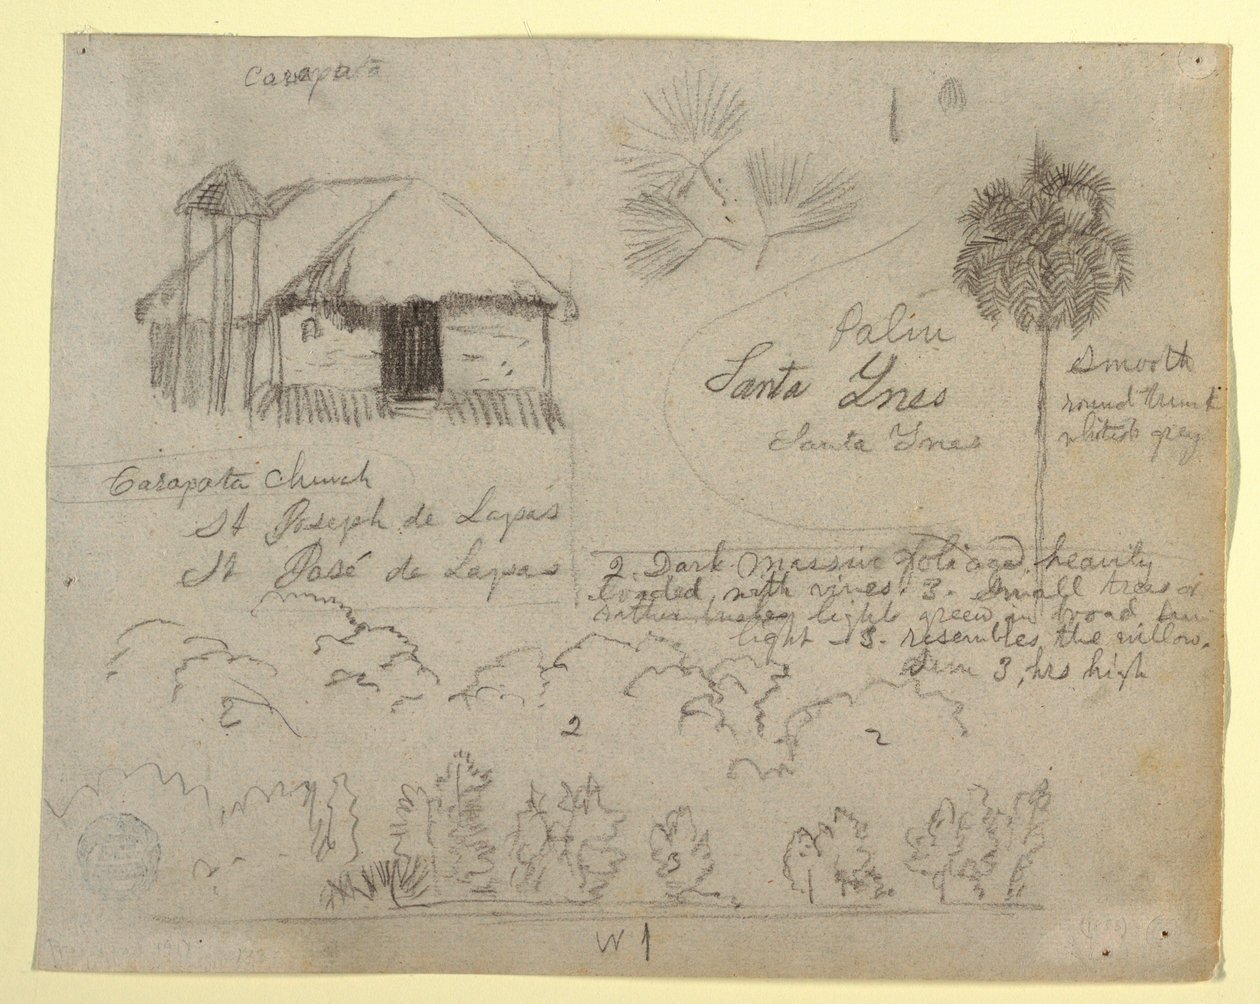 Carapata
Palm
Santa Ynes
Santa Ynes
Smooth
round trunk
whitish grey
Carapata Church
St Joseph de Lapas
St José de Lapas
2. Dark massive foliaged, heavily
loaded with vines. 3. Small trees or
rather bushey light green in broad
light - 3. resembles the willow.
Sun 3, hrs high
2
2
3
W 1